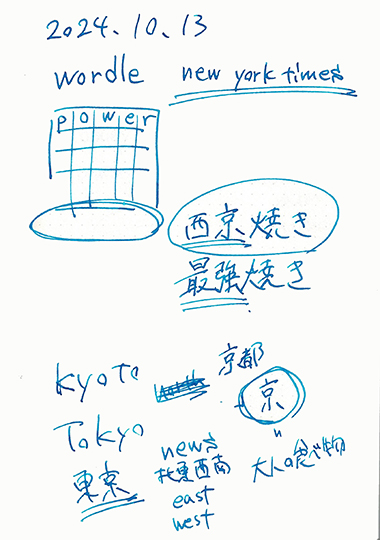 2024.10.13
wordle
new york times
power
西京焼き
最強焼き
京都
kyoto
京
Tokyo
東京
news
北東西南
east
west
大人の食べ物